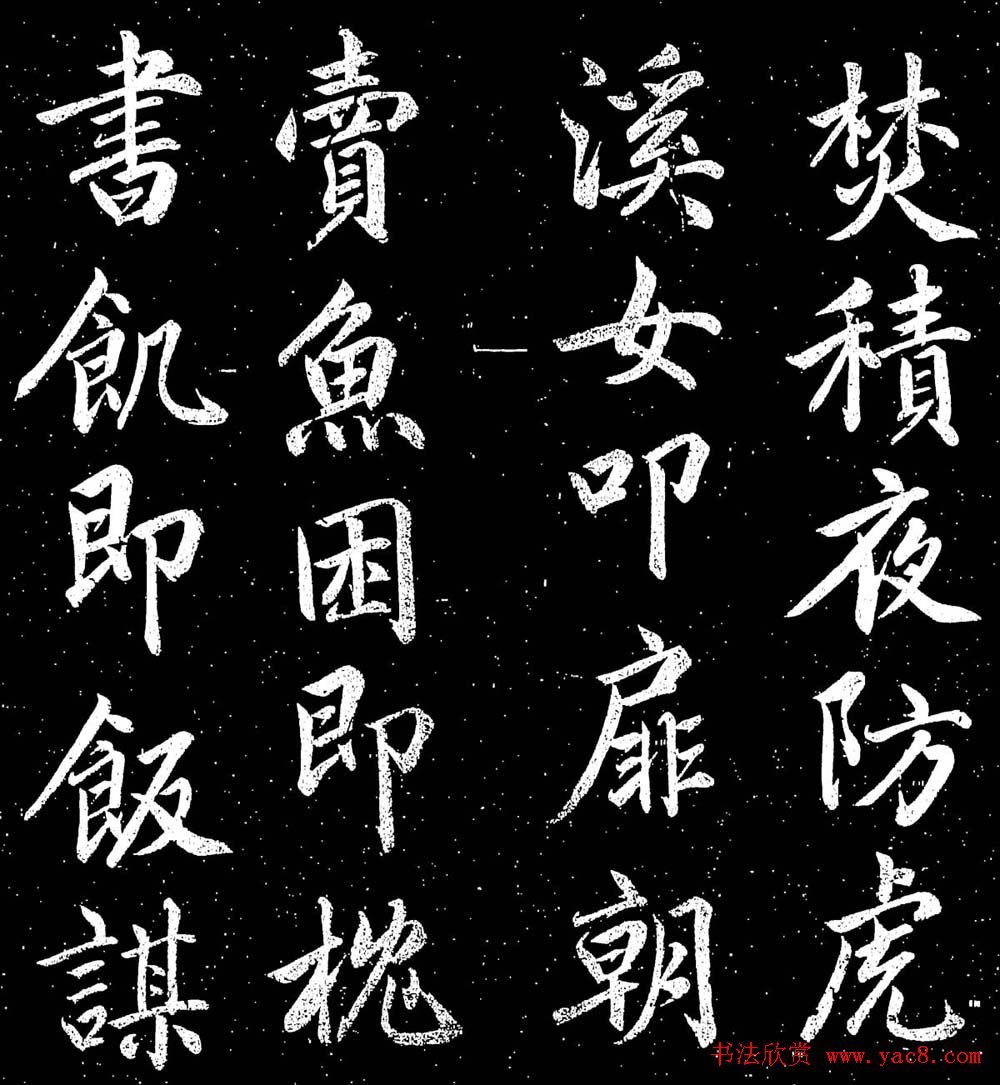 焚積夜防虎
溪女叩扉朝
賣魚困即枕
書飢即飯謀
书法欣赏 www.yac8.com